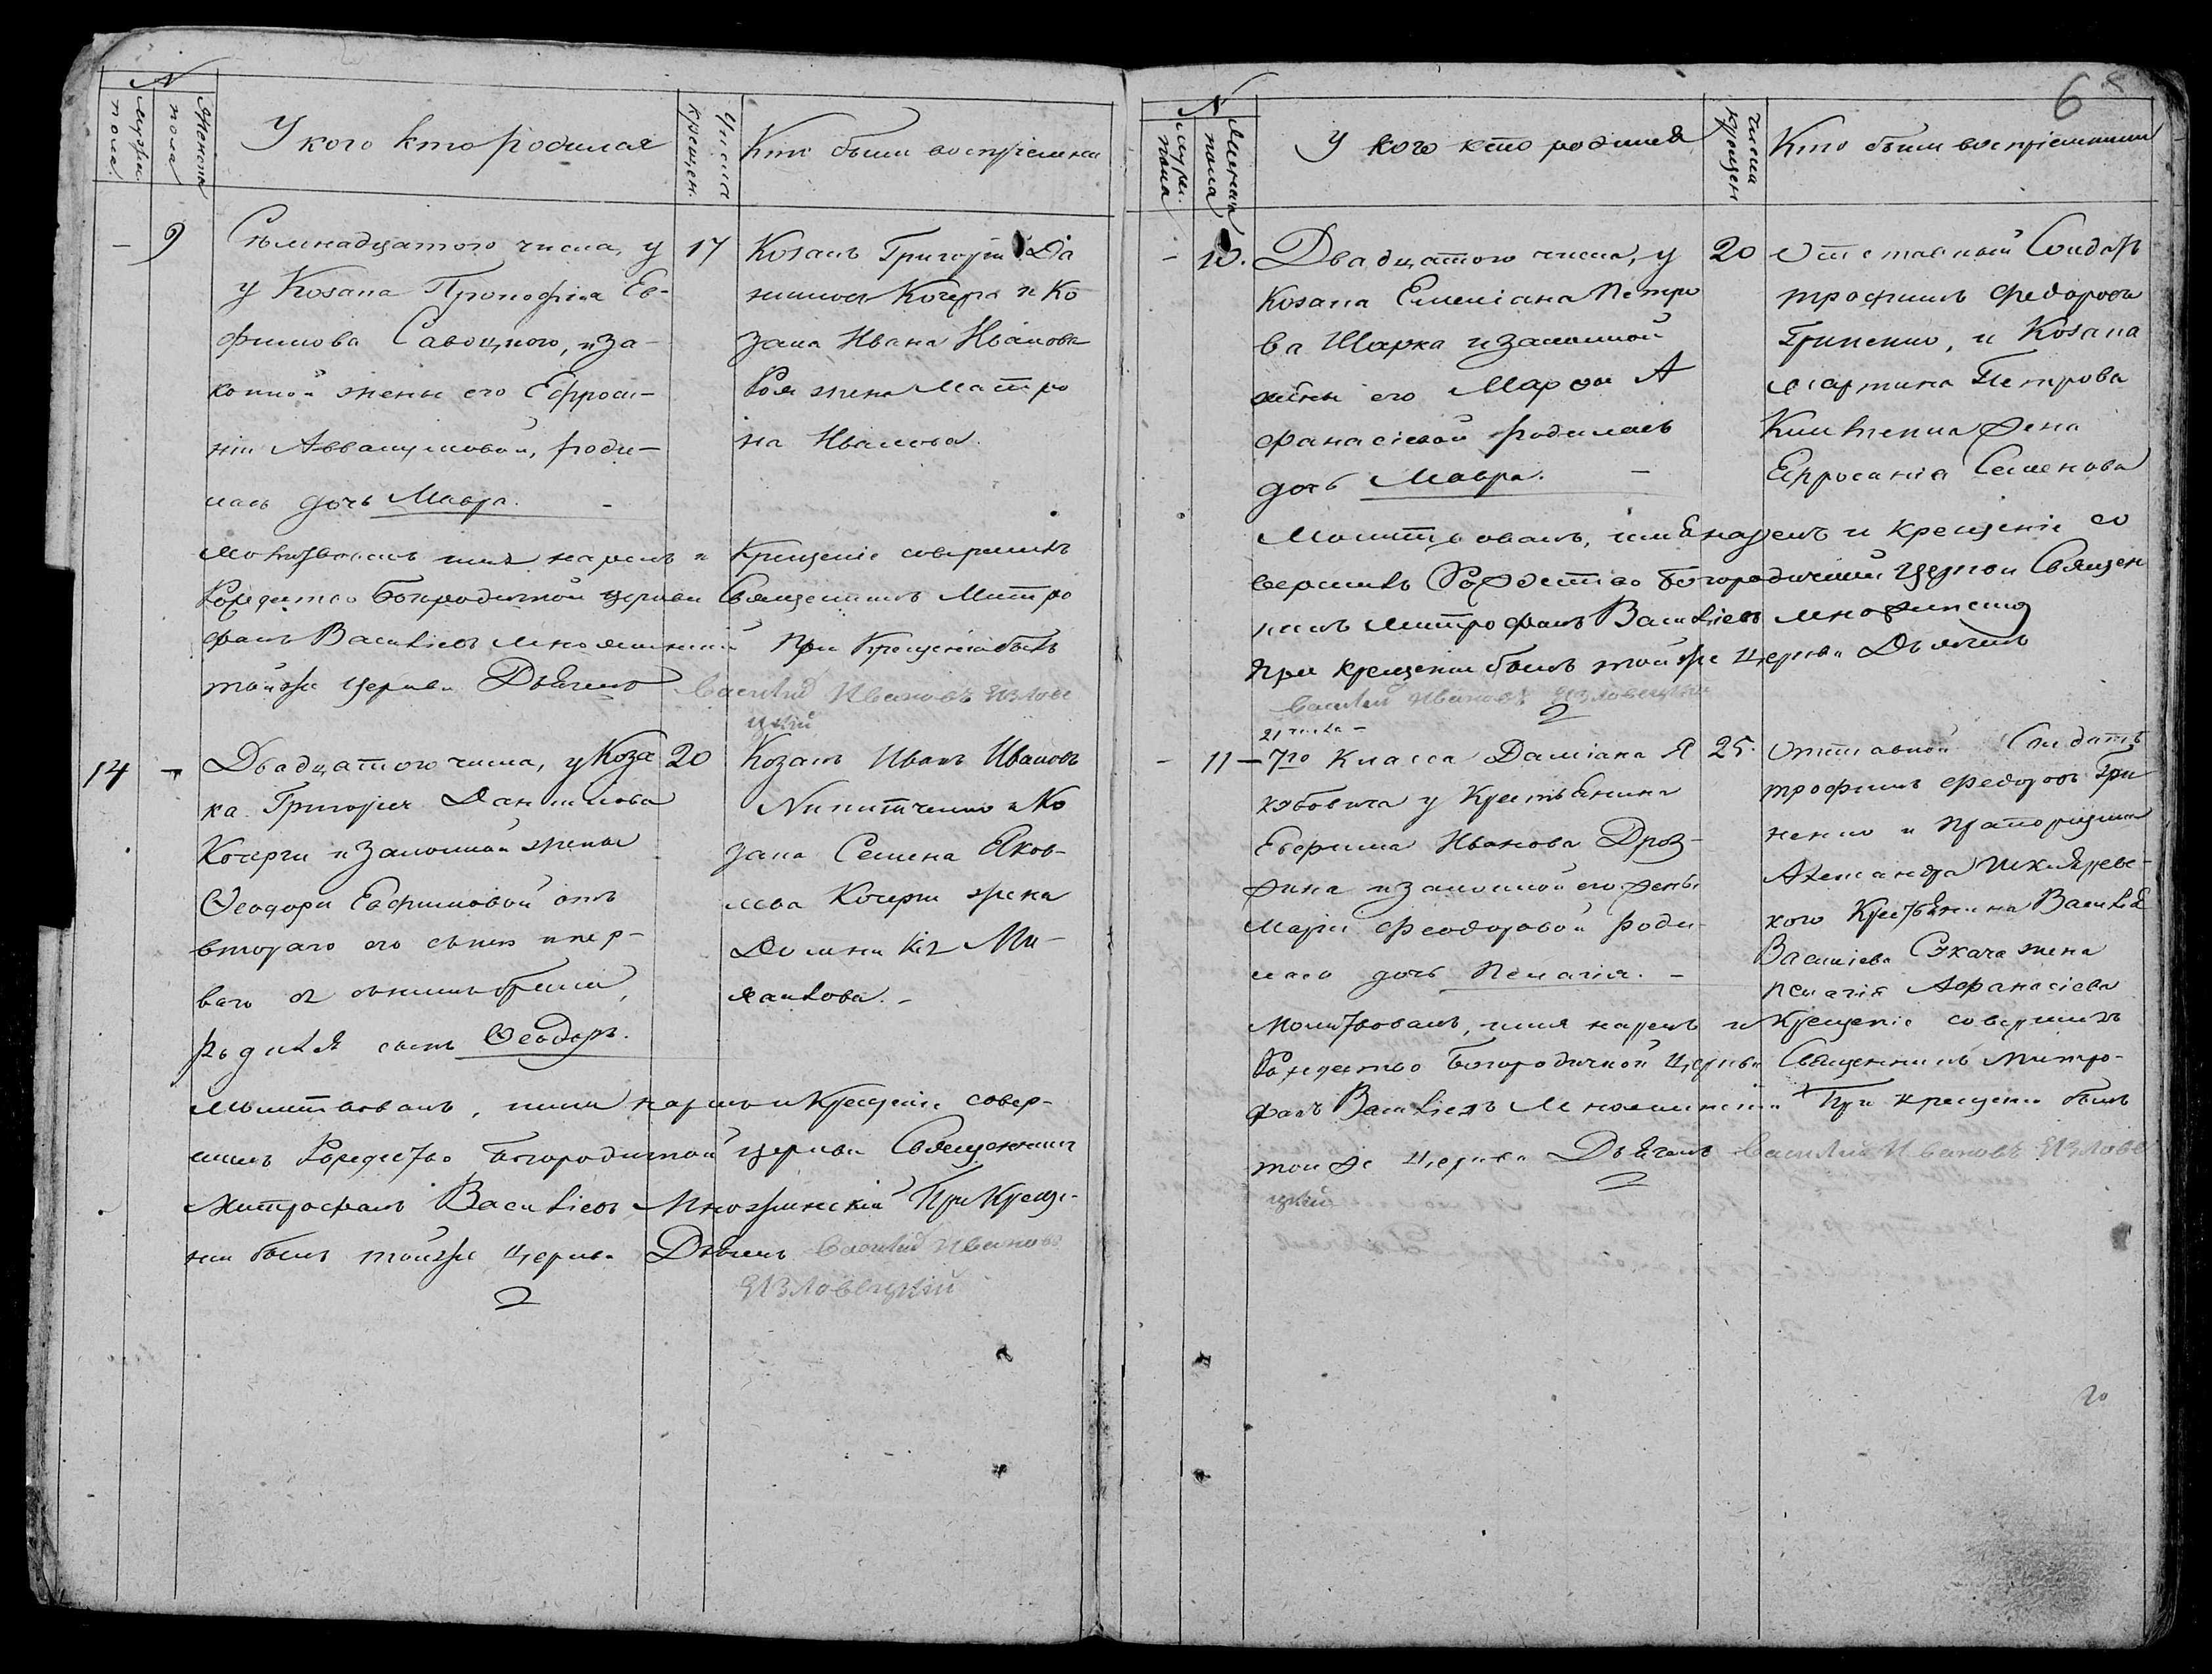 N
Мужеска пола
Женска пола
У кого кто родился
Числа крещен.
Кто были воспріемники
— 9
Семнадцатого числа, у
у Козака Прокофія Ев-
фимова Савоцкого, и за-
конной жены его Ефроси-
ніи Аввакумовой, роди-
лась дочь Мавра. —
17
Козакъ Григорій Да
ниловъ Кочерга и Ко
зака Ивана Иванова
жена Матро
на Иванова.
Молитвовалъ имя нарекъ и Крещеніе совершилъ
Рождество Богородичной церкви Священникъ Митро
фанъ Васильевъ Множинскій При Крещеніи былъ
тойже Церкви Дьячекъ Василій Ивановъ Изловѣ
цкій
14 —
Двадцатого числа, у Коза
ка Григорія Данилова
Кочерги и законной жены
Ѳеодоры Евфимовой отъ
втораго его съ нею и пер-
ваго съ нимъ брака,
родился сынъ Ѳеодоръ.
20
Козакъ Иванъ Ивановъ
Никитченко и Ко
зака Семена Яков-
лева Кочерги жена
Домникія Ми-
хайлова. —
Молитвовалъ, имя нарекъ и Крещеніе совер-
шилъ Рождество Богородичной церкви Священникъ
Митрофанъ Васильевъ Множинскій При Креще-
ніи былъ тойже Церкви Дьячекъ Василій Ивановъ
Изловецкій
6
N
Мужес. пола
Женска пола
У кого кто родился
числа крещен
Кто были воспріемники
— 10.
Двадцатого числа, у
Козака Емеліана Петро
ва Шарка и законной
жены его Марфы А
фанасіевой родилась
дочь Мавра. —
20
Отставный Солдатъ
Трофимъ Федоровъ
Гриненко, и Козака
Мартина Петрова
жена
Ефросинія Семенова
Молитвовалъ, имя нарекъ и крещеніе со
вершилъ Рождество Богородичной Церкви Священ
никъ Митрофанъ Васильевъ Множинскій
при крещеніи былъ тойже Церкви Дьячекъ
Василій Ивановъ Изловецкій
21 числа —
— 11 —
7го Класса Даміана Я
кубовича у Крестьянина
Евфима Иванова Дроз-
дина и законной его жены
Маріи Феодоровой роди-
лась дочь Пелагія. —
25.
Отставной Солдатъ
Трофимъ Федоровъ Гри
ненко и Прапорщика
Александра Шкляреве-
кого Крестьянина Василія
Василіева Сукача жена
Пелагія Афанасіева
Молитвовалъ, имя нарекъ и Крещеніе совершилъ
Рождество Богородичной Церкви Священникъ Митро-
фанъ Васильевъ Множинскій При крещеніи былъ
той же Церкви Дьячекъ Василій Ивановъ Излове
цкій